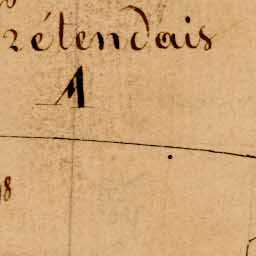 rétendais
A